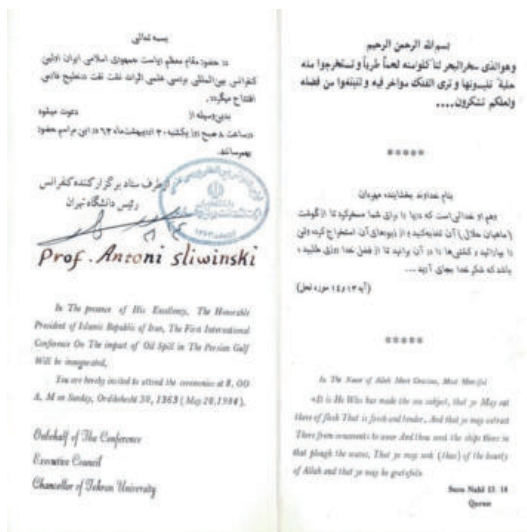 بسمه تعالی
در حضور مقام معظم ریاست جمهوری اسلامی ایران اولین
کنفرانس بین‌المللی بررسی علمی اثرات نفت در خلیج فارس
افتتاح میگردد.
بدین‌وسیله از دعوت میشود
در ساعت ۸ صبح روز یکشنبه ۳۰ اردیبهشت‌ماه ۶۳ در این مراسم حضور
بهم رسانند.
از طرف ستاد برگزار کننده کنفرانس
رئیس دانشگاه تهران
Prof. Antoni Sliwinski
In The presence of His Excellency, The Honorable
President of Islamic Republic of Iran, The First International
Conference On The impact of Oil Spill in The Persian Gulf
Will be inaugurated.
You are hereby invited to attend the ceremonies at 8, 00
A, M on Sunday, Ordibehesht 30, 1363 (May 20, 1984).
Onbehalf of The Conference
Executive Council
Chancellor of Tehran University
بسم الله الرحمن الرحیم
وهوالذی سخرالبحر لتاکلوامنه لحماً طریاً و تستخرجوا منه
حلیة تلبسونها و تری الفلک مواخر فیه و لتبتغوا من فضله
ولعلکم تشکرون....
*****
بنام خداوند بخشاینده مهربان
وهم او خدائی است که دریا را برای شما مسخر کرد تا از گوشت
(ماهیان حلال) آن تغذیه کنید و از زیورهای آن استخراج کرده و تن
را بیارائید و کشتی‌ها را در آن برانید تا از فضل خدا روزی طلبید،
باشد که شکر خدا بجای آرید...
(آیه ۱۳ و ۱۴ سوره نحل)
*****
In The Name of Allah Most Gracious, Most Merciful
«It is He Who has made the sea subject, that ye May eat
there of flesh That is fresh and tender, And that ye may extract
There from ornaments to wear And thou seest the ships there in
that plough the waves, That ye may seek (thus) of the bounty
of Allah and that ye may be grateful»
Sura Nahl 13, 14
Quran